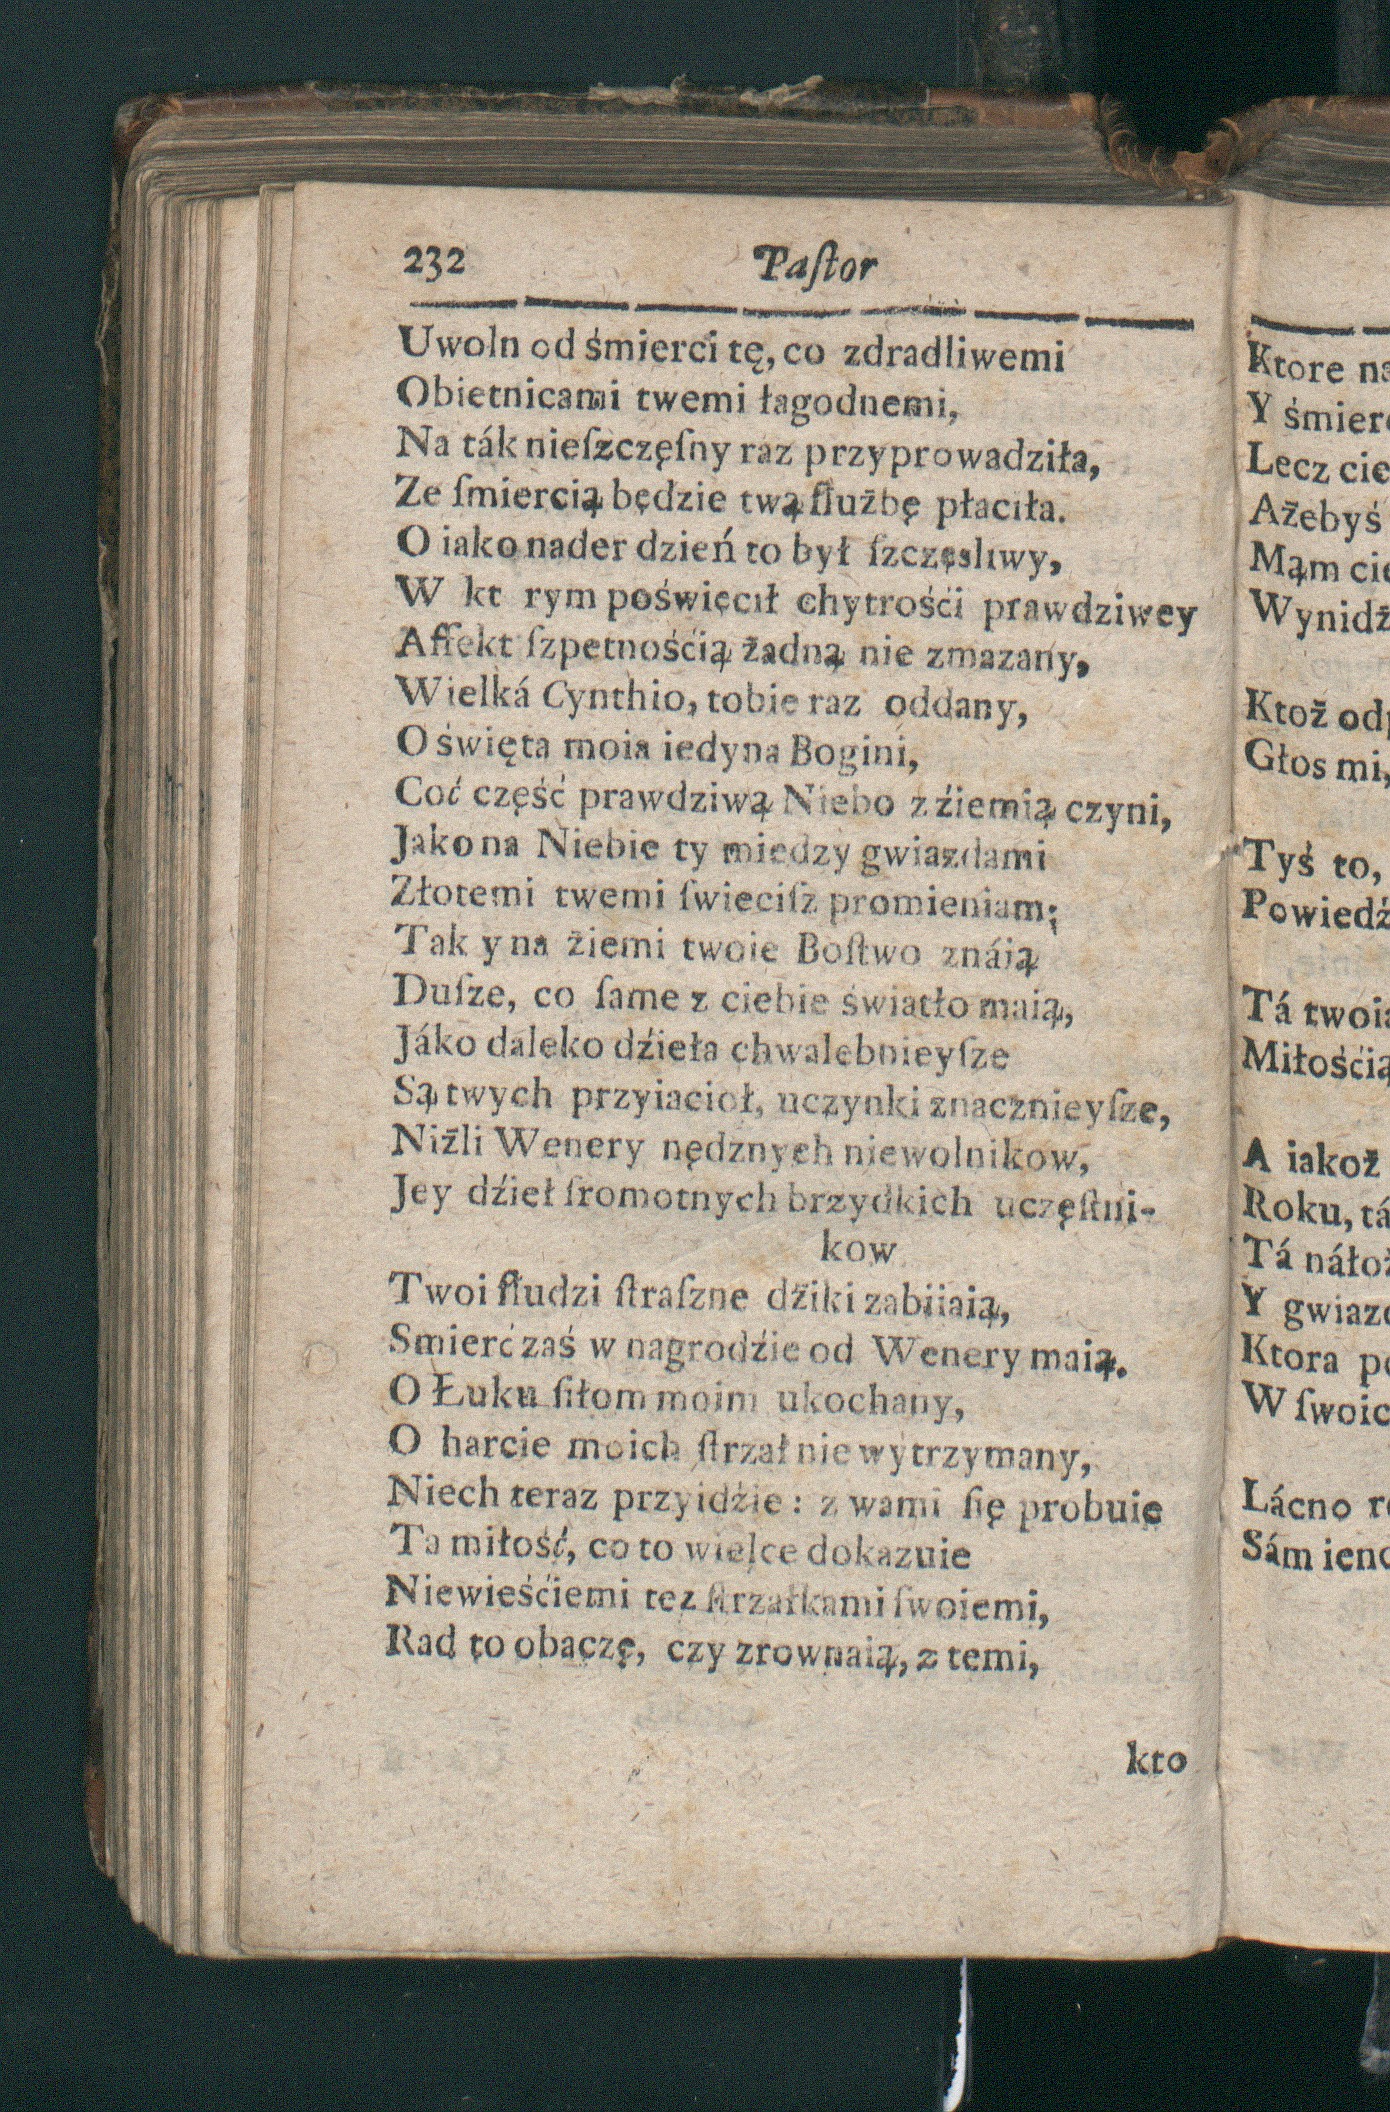 232 Paſtor
Uwoln od śmierci tę, co zdradliwemi
Obietnicami twemi łagodnemi,
Na ták nieſzczęſny raz przyprowadziła,
Ze ſmiercią będzie twą ſłużbę płaciła.
O iako nader dzień to był ſzczęsliwy,
W kt rym poświęcił chytrośći prawdziwey
Affekt ſzpetnośćią żadną nie zmazany,
Wielká Cynthio, tobie raz oddany,
O święta moia iedyna Bogini,
Coć część prawdziwą Niebo z źiemią czyni,
Jako na Niebie ty miedzy gwiazdami
Złotemi twemi ſwieciſz promieniam;
Tak y na źiemi twoie Boſtwo znáią
Duſze, co ſame z ciebie światło maią,
Jáko daleko dźieła chwalebnieyſze
Są twych przyiacioł, uczynki znacznieyſze,
Niżli Wenery nędznych niewolnikow,
Jey dźieł ſromotnych brzydkich uczęſtni-
kow
Twoi ſłudzi ſtraſzne dźiki zabiiaią,
Smierć zaś w nagrodźie od Wenery maią.
O Łuku ſiłom moim ukochany,
O harcie moich ſtrzał nie wytrzymany,
Niech teraz przyidźie: z wami ſię probuie
Ta miłość, co to wielce dokazuie
Niewieśćiemi tez ſtrzałkami ſwoiemi,
Rad to obaczę, czy zrownaią, z temi,
kto
Ktore
Y
Lecz
Ażebyś
Mąm
Wynidź
Ktoż
Głos mi,
Tyś to,
Powiedź
Tá
Miłośćią
A iakoż
Roku,
Tá
Y
Ktora
W
Lácno
Sám